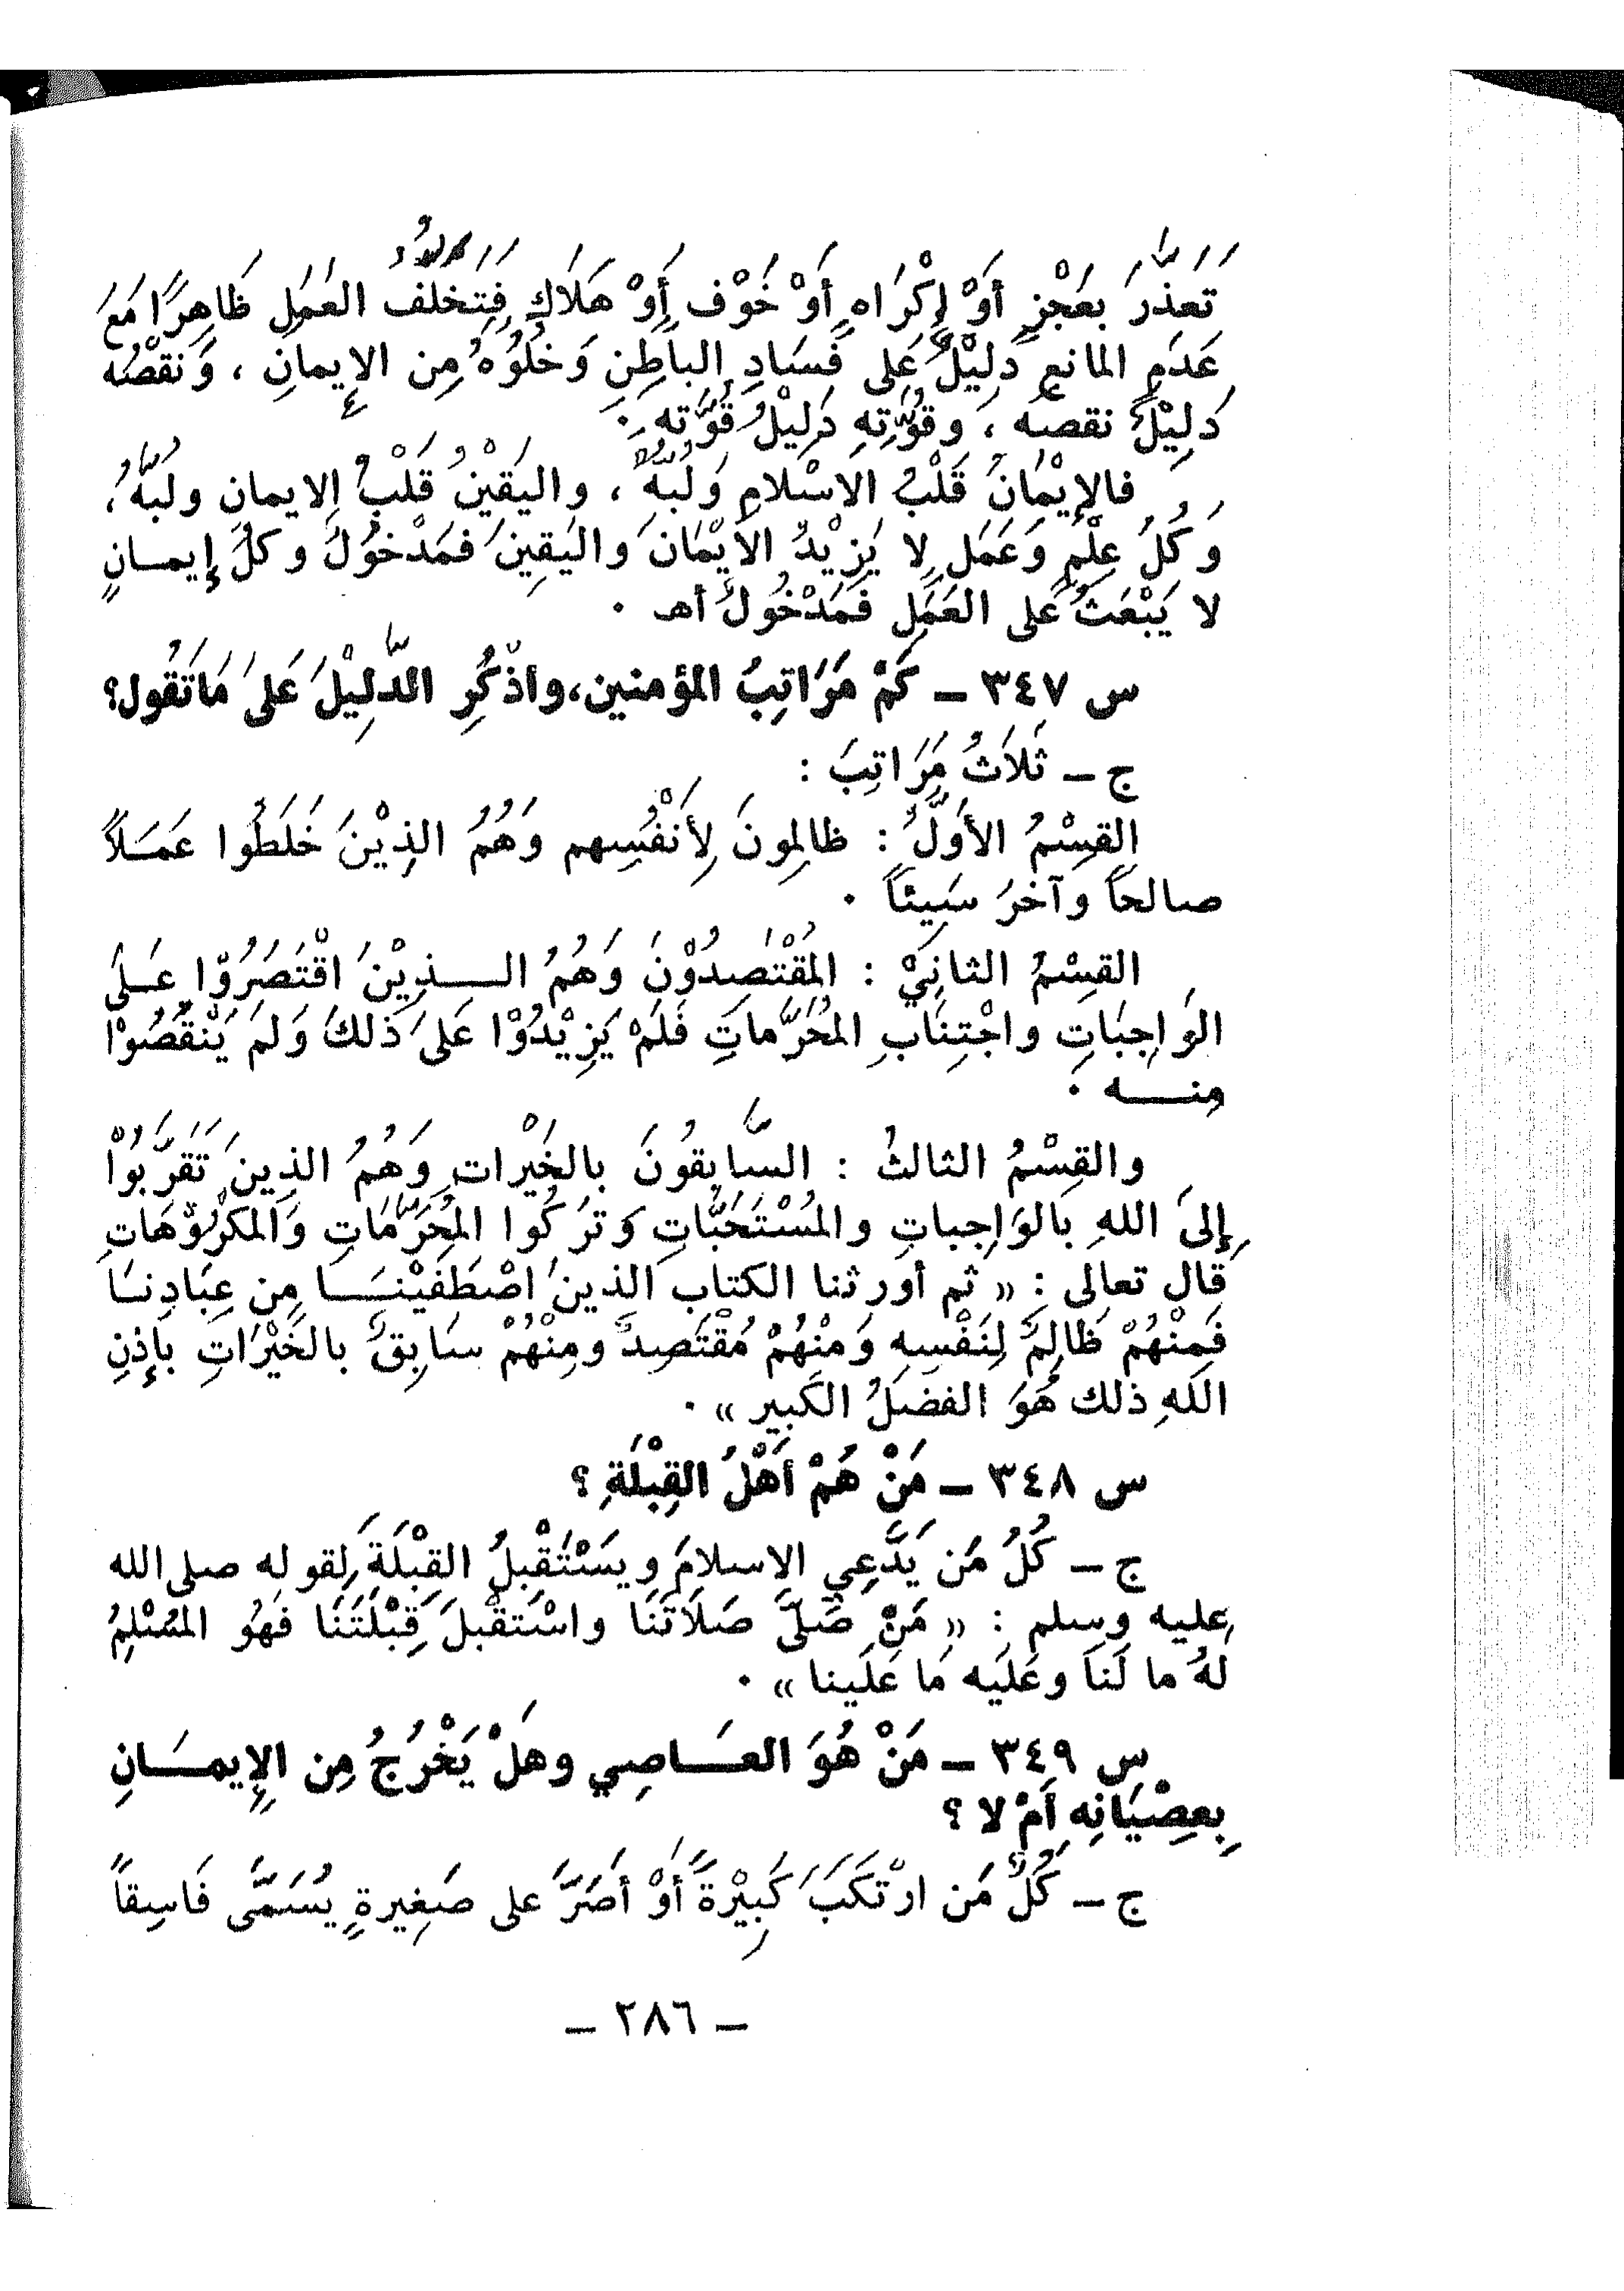 تَعَذَّرَ بِعَجْزٍ أَوْ إِكْرَاهٍ أَوْ خَوْفِ أَوْ هَلَاكٍ فَتَخَلُّفُ العَمَلِ ظَاهِرًا مَعَ
عَدَمِ المانعِ دَلِيْلٌ عَلى فَسَادِ الباطِنِ وَخُلُوُهُ مِن الإِيمانِ ، وَنقْصُهُ
دَلِيْلُ نقصه ، وقُوَّتِهِ دَلِيْلُ قُوَّتِهِ .
فالإِيْمانُ قَلْبُ الاسْلامِ وَلُبُّهُ ، واليَقيْنُ قَلْبُ الايمانِ ولُبُّهُ ،
وَكُلُ عِلْمٍ وَعَمَلٍ لا يَزِيْدُ الاَيْمَانَ واليَقِينَ فمَدْخُوْلٌ وكلُّ إِيمــانٍ
لا يَبْعَثُ عَلى العَمَلِ فَمَدْخُولٌ أهـ .
س ٣٤٧ ــ كَمْ مَرَاتِبُ المؤمنين، واذْكُرِ الدَّلِيْلَ عَلىَ مَا تَقُول؟
ج ــ ثَلاَثُ مَرَاتِبَ :
القِسْمُ الأَوَّلُ : ظالِمونَ لِأَنْفُسِهم وَهُمُ الذِيْنَ خَلَطُوا عَمَــلاً
صالحاً وآخرَ سَيئاً .
القِسْمُ الثانِيْ : المُقْتَصِدُوْنَ وَهُمُ الـــذِيْنَ اقْتَصَرُوْا عَــلَى
الوَاجِبَاتِ واجْتِنَابِ المُحَرَّماتِ فَلَمْ يَزِيْدُوْا عَلىَ ذَلكَ وَلمَ يَنْقُصُوْا
مِنــــه .
والقِسْمُ الثالثُ : السَّابِقُونَ بالخَيْراتِ وَهُمُ الذِينَ تَقَرَّبُوْا
إِلىَ اللهِ بَالوَاجِباتِ والمُسْتَحَبَّاتِ وَتَرَكُوا المُحَرَّمَاتِ وَالمَكرُوْهَاتِ
قال تعالى : « ثم أورثنا الكتاب الذينَ اصْطَفَيْنــَـــا مِن عِبَادِنــَا
فَمِنْهُمْ ظَالِمٌ لِنَفْسِهِ وَمنْهُمْ مُقْتَصِدٌ ومِنْهُمْ سَابِقٌ بالخَيْرَاتِ بإِذْنِ
اللَهِ ذلك هُوَ الفضَلُ الكَبِير » .
س ٣٤٨ ــ مَنْ هُمْ أَهْلُ القِبْلَةِ ؟
ج ــ كُلُ مَن يَدَّعِي الإسلامَ ويَسْتَقْبِلُ القِبْلَةَ لِقوله صلى الله
عليه وسلم : « مَنْ صَلىَّ صَلاَتَنَا واسْتَقْبلَ قِبْلَتَنَا فهُو المُسْلِمُ
لهُ ما لَناَ وعَلَيه مَا عَلَينا » .
س ٣٤٩ ــ مَنْ هُوَ العَـــاصِي وهلْ يَخْرُجُ مِن الإِيمــَـانِ
بِعِصْيَانِهِ أَمْ لا ؟
ج ــ كُلُّ مَن ارْتَكَبَ كَبِيْرةً أَوْ أَصَرَّ على صَغِيرةٍ يُسَمَّى فَاسِقاً
ــ ٢٨٦ ــ